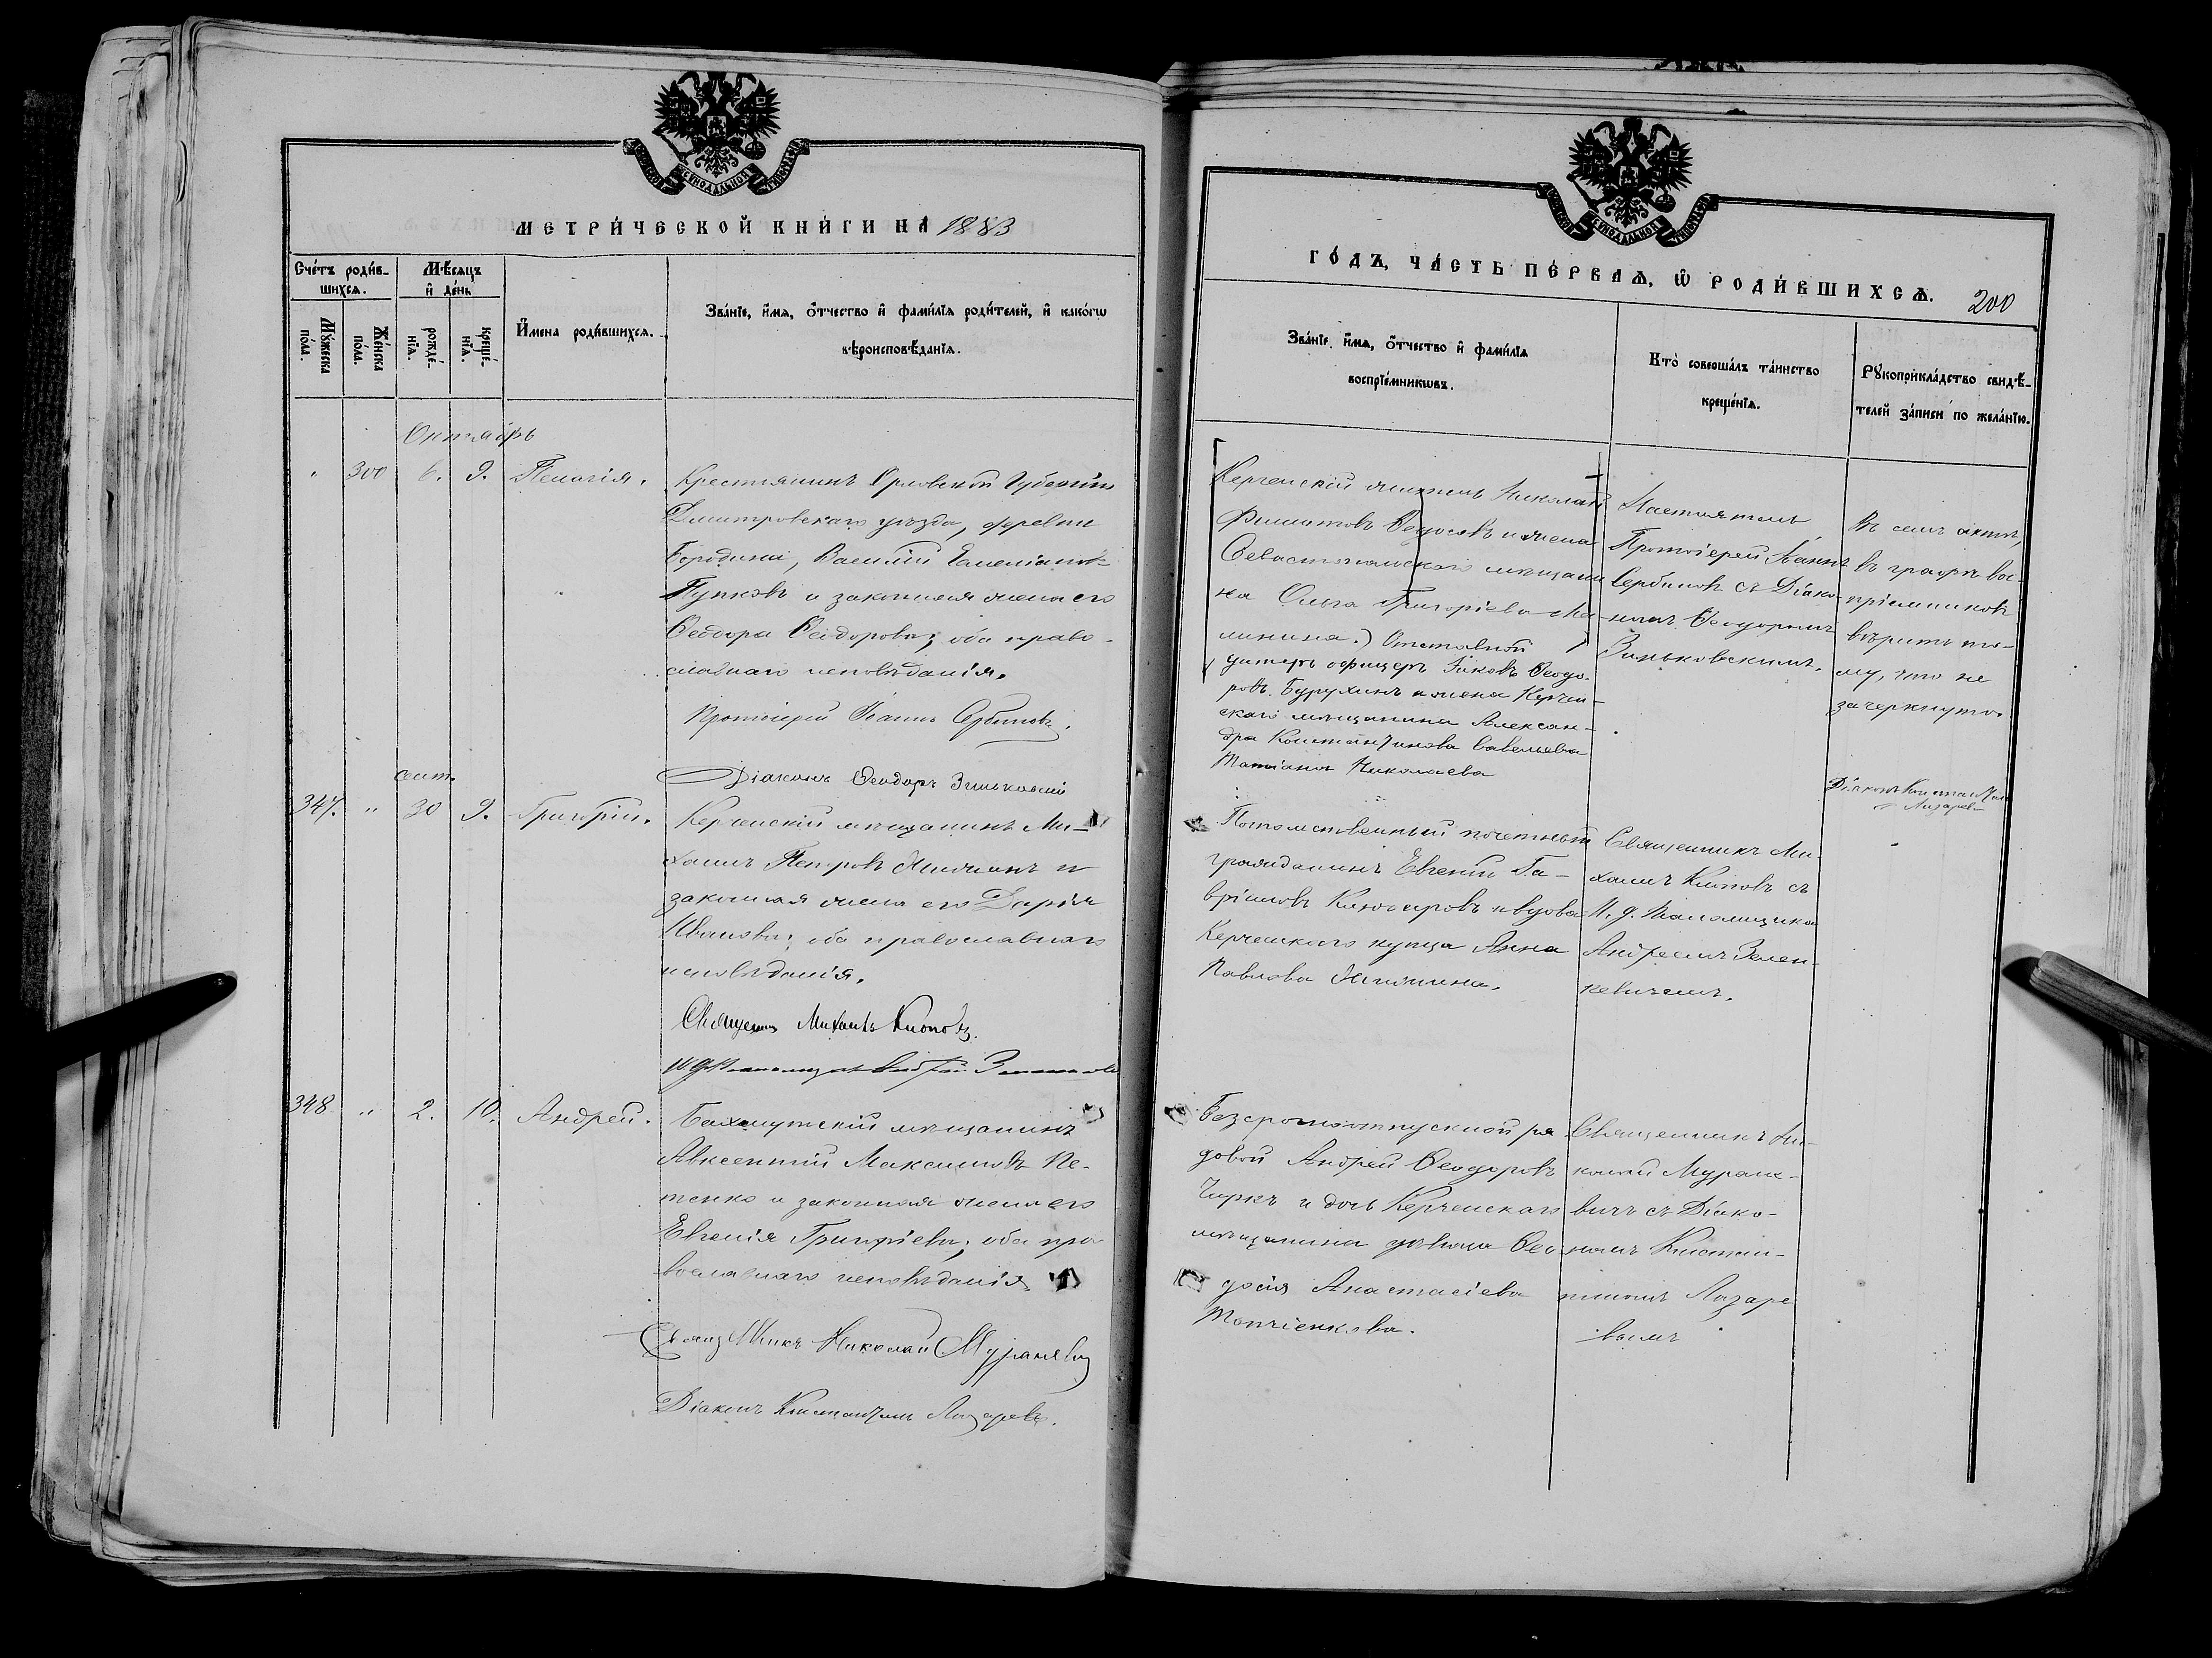 МЕТРИ́ЧЕСКОЙ КНИ́ГИ НА 1883
Сче́тъ роди́в-
шихсѧ.
Мѣ́сяцъ
и҆ де́нь
Мꙋ́жеска
по́ла.
Же́нска
по́ла.
рожде́-
нїѧ.
креще́-
нїѧ.
И҆мена роди́вшихсѧ.
Зва́нїе, и҆́мѧ, ѻ҆́тчество и҆ фами́лїѧ роди́телей, и҆ како́гѡ
вѣроисповѣ́данїѧ.
Октябрь
" 300 6. 9. Пелагія.
Крестьянинъ Орловской Губерніи
Дмитровскаго уѣзда, деревни
Бородиной, Василій
Пупковъ и законная жена его
Ѳеодора Ѳеодорова; оба право-
славнаго исповѣданія.
Протоіерей Іоаннъ Сербиновъ.
Діаконъ Ѳеодоръ Зиньковскій
сент.
347. " 30 9. Григорій.
Керченскій мѣщанинъ Ми-
хаилъ Петровъ и
законная жена его Дарія
Иванова; оба православнаго
исповѣданія.
Священникъ Михаилъ Клоповъ.
348 " 2. 10. Андрей.
Бахмутскій мѣщанинъ
Авксентій Максимовъ Пе-
тенко и законная жена его
Евгенія Григоріева; оба пра-
вославнаго исповѣданія.
Священникъ Николай Мураневичъ
Діаконъ Константинъ Лазаревъ.
ГО́ДЪ, ЧА́СТЬ ПЕ́РВАѦ, Ѡ҆ РОДИ́ВШИХСѦ. 200
Зва́нїе, и҆́мѧ, ѻ҆́тчество и҆ фами́лїѧ
воспрїе́мникѡвъ.
Кто̀ соверша́лъ та́инство
креще́нїѧ.
Рꙋкоприкла́дство свидѣ́-
телей за́писи по жела́нїю.
Керченскій житель Николай
Филиповъ Ѳедосѣвъ и жена
Севастопольскаго мѣщани
на Ольга Григоріева Ма-
линина.) Отставной
унтеръ офицеръ Яковъ Ѳеодо-
ровъ Бурухинъ и жена Керчен-
скаго мѣщанина Алексан-
дра Константинова Савельева
Татіана Николаева
Настоятель
Протоіерей Іоаннъ
Сербиновъ съ Діако-
номъ Ѳеодоромъ
Зиньковскимъ.
Въ семъ актѣ,
въ графѣ вос-
пріемниковъ
вѣрить то-
му, что не
зачеркнуто.
Діаконъ Константинъ
Лазаревъ
Потомственный почетный
гражданинъ Евгеній Га-
вріиловъ и вдова
Керченскаго купца Анна
Павлова
Священникъ Ми-
хаилъ Клоповъ съ
И. д. Псаломщика
Андреемъ Зелен-
кевичемъ.
Безсрочноотпускной ря
довой Андрей Ѳеодоровъ
Чиркъ и дочь Керченскаго
мѣщанина дѣвица Ѳео
досія Анастасіева
Топчіенкова.
Священникъ Ни-
колай Муране-
вичъ съ Діако-
номъ Констан-
тиномъ Лазаре
вымъ